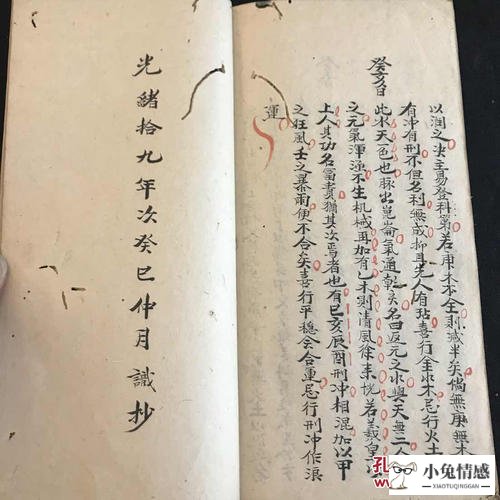 以润之决主易登科第若庚木不全則减半矣倘無庚無木
有冲有刑不但名利無成抑且先人有玷喜行金水木忌行火土
癸亥日
此水天一色也脉出崑崙氣通乾亥名曰返元之水與天無二人
之元氣渾涵不生机械再加有乙木則清風徐来恍若羲皇
上人其功名富貴猶其次焉者也有巳亥辰酉刑冲相混加以甲
之狂風壬之暴雨便不合矣喜行平穏会合運忌行刑冲作浪
運
光緒拾九年次癸巳仲月識抄
孔
小兔情感
XIAOTUQINGGAN.COM